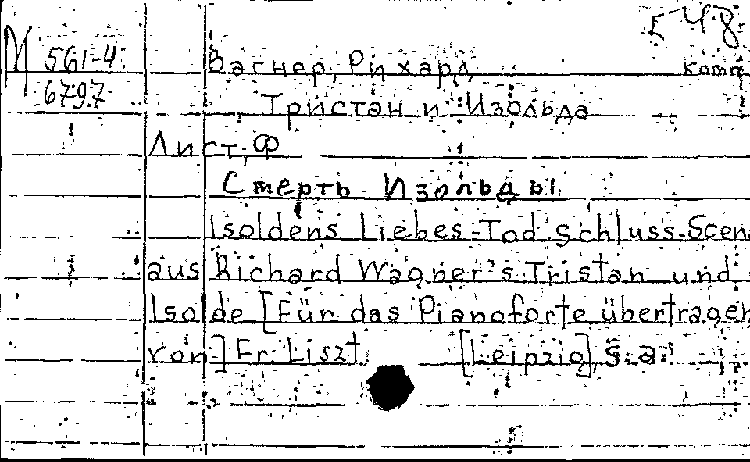 548.
М 561-4 Вагнер, Рихард комп
6797 Тристан и Изольда
Лист, Ф
Смерть Изольды
Isoldens Liebes-Tod Schluss-Scen
aus Richard Wagner's Tristan und
Isolde [Für das Pianoforte übertragen
von] Fr. Liszt. [Leipzig], s.a.